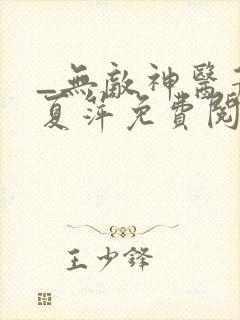 _無敵神醫
夏萍免費閱
王少鋒